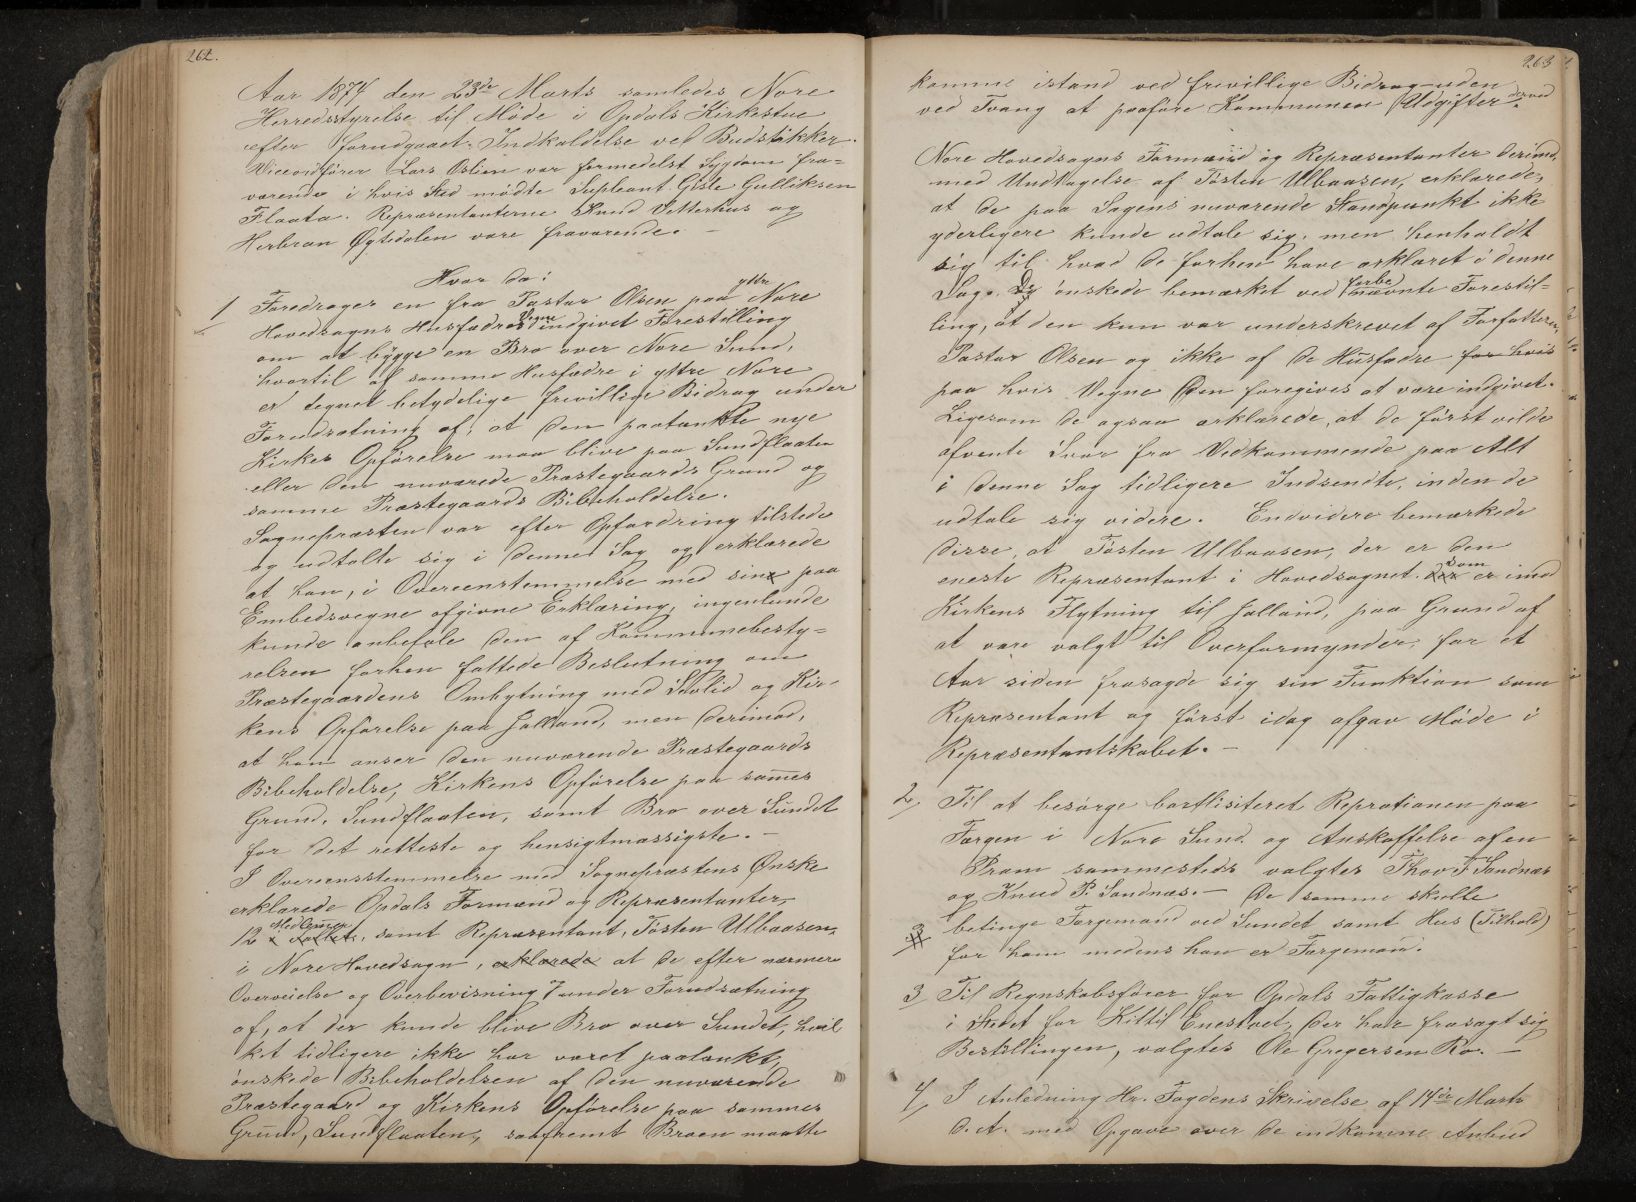 262.
Aar 1874 den 23de Marts samledes Nore
Herredsstyrelse til Møde i Opdals Kirkestue
efter forudgaaet Indkaldelse ved Budstikker.
Viceordfører Lars Oslien var formedelst Sygdom fra=
værende i hvis Sted mødte Supleant Gisle Gulliksen
Flaata. Repræsentanterne Knud Vetterhus og
Herbran Øgtedalen vare fraværende. —
Hvor da:
1 Foredroges en fra Pastor Olsen paa yttre Nore
Hovedsogns Husfædres Vegne indgivet Forestilling
om at bygge en Bro over Nore Sund,
hvortil af samme Husfædre i yttre Nore
er tegnet betydelige frivillige Bidrag under
Forudsætning af, at den paatænkte nye
Kirkes Opførelse maa blive paa Sundflaaten
eller den nuværede Præstegaards Grund og
samme Præstegaards Bibeholdelse.
Sognepræsten var efter Opfordring tilstede
og udtalte sig i denne Sag og erklærede
at han, i Overeenstemmelse med sine paa
Embedsvegne afgivne Erklæring, ingenlunde
kunde anbefale den af Kommunebesty=
relsen forhen fattede Beslutning om
Præstegaardens Ombytning med Skolid og Kir-
kens Opførelse paa Jalland, men derimod,
at han anser den nuværende Præstegaards
Bibeholdelse, Kirkens Opførelse paa sammes
Grund, Sundflaaten, samt Bro over Sundet
for det retteste og hensigtmæssigste. —
I Overeensstemmelse med Sognepræstens Ønske
erklærede Opdals Formænd og Repræsentanter,
12 Medlemmer, samt Repræsentant, Tosten Ulbaasen,
i Nore Hovedsogn, erklærede at de efter nærmere
Overveielse og Overbevisning under Forudsætning
af, at der kunde blive Bro over Sundet, hvil
ket tidligere ikke har været paatænkt,
ønskede Bibeholdelsen af den nuværende
Præstegaard og Kirkens Opførelse paa sammes
Grund, Sundflaaten, saafremt Broen maatte
263
komme istand ved frivillige Bidrag uden
ved Tvang at paaføre Kommunen Udgifter derved.
Nore Hovedsogns Formænd og Repræsentanter derimod,
med Undtagelse af Tosten Ulbaasen, erklærede,
at de paa Sagens nuværende Standpunkt ikke
yderligere kunde udtale sig, men henholdt
sig til hvad de forhen have erklæret i denne
Sag. De ønskede bemærket ved forbenævnte Forestil=
ling, at den kun var underskrevet af Forfatteren,
Pastor Olsen og ikke af de Husfædre for hvis
paa hvis Vegne den foregives at være indgivet.
Ligesom de ogsaa erklærede, at de først vilde
afvente Svar fra Vedkommende paa Alt
i denne Sag tidligere Indsendte, inden de
udtale sig videre. Endvidere bemærkede
disse, at Tosten Ulbaasen, der er den
eneste Repræsentant i Hovedsognet som er imod
Kirkens Flytning til Jalland, paa Grund af
at være valgt til Overformynder, for et
Aar siden frasagde sig sin Funktion som
Repræsentant og først idag afgav Møde i
Repræsentantskabet. —
2 Til at besørge bortlisiteret Reprationen paa
Færgen i Nore Sund og Anskaffelse af en
Pram sammesteds valgtes Thov T. Sandnæs
og Knud P. Sandnæs. — De samme skulle
betinge Færgemand ved Sundet samt Hus (Tilhold)
for ham medens han er Færgemand.
3 Til Regnskabsfører for Opdals Fattigkasse
i Stedet for Kittil Enestvet, der har frasagt sig
Bestillingen, valgtes Ole Gregersen Ro. —
4 I Anledning Hr. Fogdens Skrivelse af 14de Marts
d. A. med Opgave over de indkomne Anbud